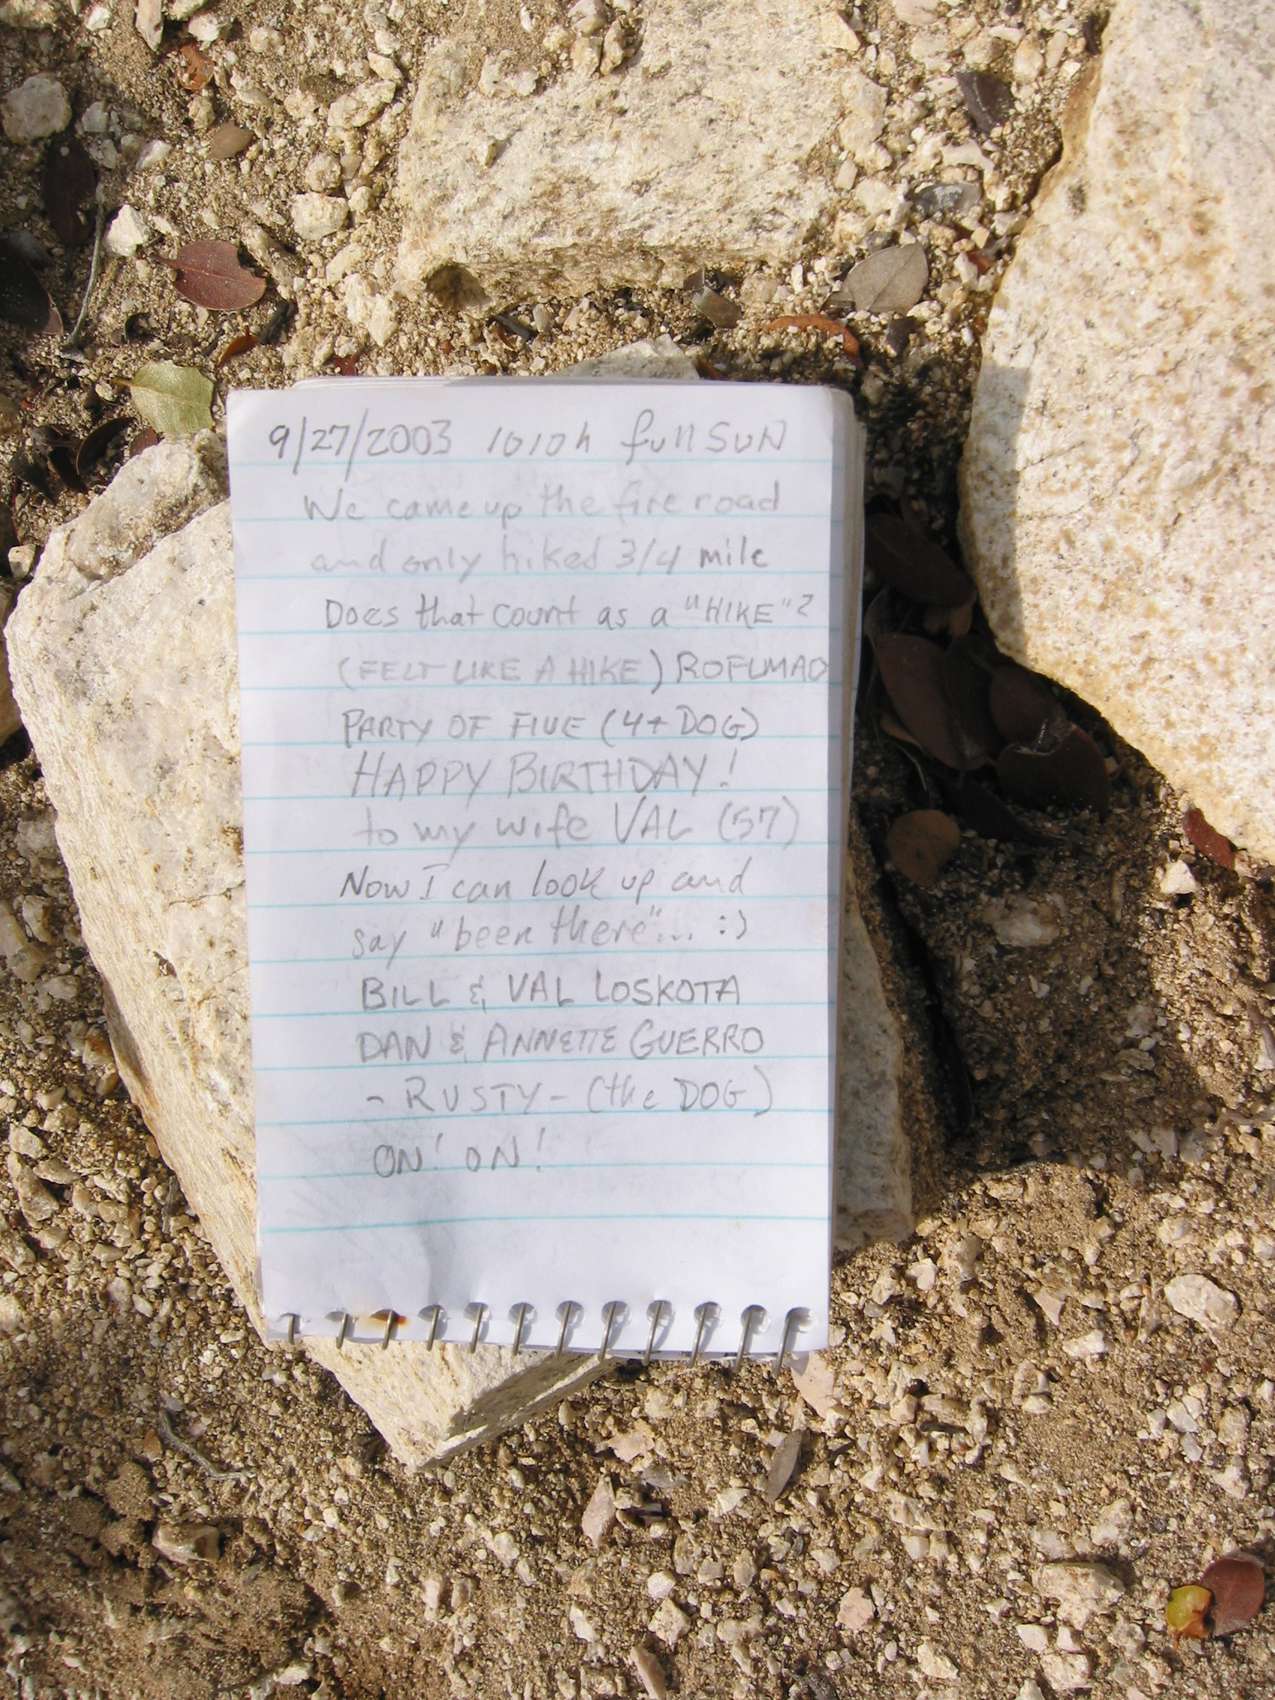 9/27/2003 1010h full SUN
We came up the fire road
and only hiked 3/4 mile
Does that count as a "HIKE"?
(FELT LIKE A HIKE) ROFLMAO
PARTY OF FIVE (4+ DOG)
HAPPY BIRTHDAY!
to my wife VAL (57)
Now I can look up and
say "been there"... :)
BILL & VAL LOSKOTA
DAN & ANNETTE GUERRO
- RUSTY - (the DOG)
ON! ON!